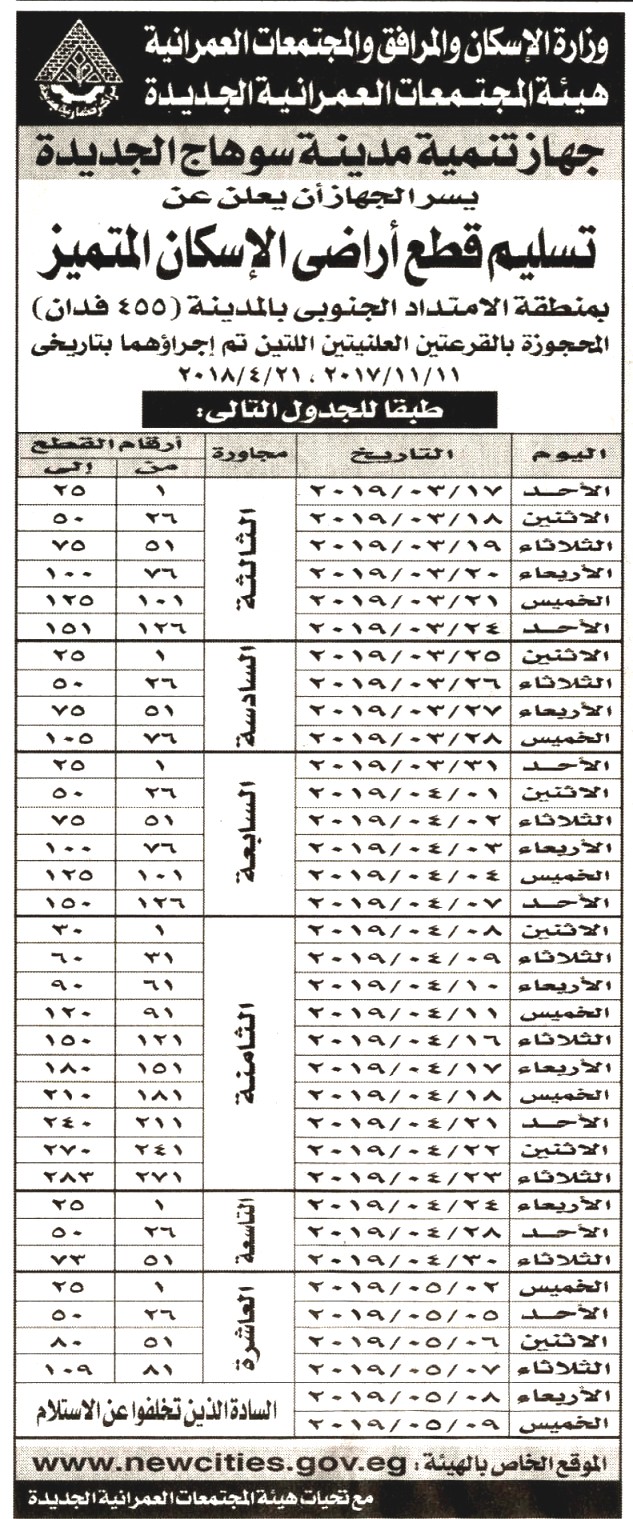 وزارة الإسكان والمرافق والمجتمعات العمرانية
هيئة المجتمعات العمرانية الجديدة
جهاز تنمية مدينة سوهاج الجديدة
يسر الجهاز أن يعلن عن
تسليم قطع أراضى الإسكان المتميز
بمنطقة الامتداد الجنوبى بالمدينة (٤٥٥ فدان)
المحجوزة بالقرعتين العلنيتين اللتين تم إجراؤهما بتاريخى
٢٠١٧/١١/١١ ، ٢٠١٨/٤/٢١
طبقا للجدول التالى:
اليوم التاريخ مجاورة أرقام القطع
من إلى
الأحد ٢٠١٩/٠٣/١٧ ١ ٢٥
الاثنين ٢٠١٩/٠٣/١٨ ٢٦ ٥٠
الثلاثاء ٢٠١٩/٠٣/١٩ ٥١ ٧٥
الثالثة
الأربعاء ٢٠١٩/٠٣/٢٠ ٧٦ ١٠٠
الخميس ٢٠١٩/٠٣/٢١ ١٠١ ١٢٥
الأحد ٢٠١٩/٠٣/٢٤ ١٢٦ ١٥١
الاثنين ٢٠١٩/٠٣/٢٥ ١ ٢٥
الثلاثاء ٢٠١٩/٠٣/٢٦ ٢٦ ٥٠
السادسة
الأربعاء ٢٠١٩/٠٣/٢٧ ٥١ ٧٥
الخميس ٢٠١٩/٠٣/٢٨ ٧٦ ١٠٥
الأحد ٢٠١٩/٠٣/٣١ ١ ٢٥
الاثنين ٢٠١٩/٠٤/٠١ ٢٦ ٥٠
الثلاثاء ٢٠١٩/٠٤/٠٢ ٥١ ٧٥
السابعة
الأربعاء ٢٠١٩/٠٤/٠٣ ٧٦ ١٠٠
الخميس ٢٠١٩/٠٤/٠٤ ١٠١ ١٢٥
الأحد ٢٠١٩/٠٤/٠٧ ١٢٦ ١٥٠
الاثنين ٢٠١٩/٠٤/٠٨ ١ ٣٠
الثلاثاء ٢٠١٩/٠٤/٠٩ ٣١ ٦٠
الأربعاء ٢٠١٩/٠٤/١٠ ٦١ ٩٠
الخميس ٢٠١٩/٠٤/١١ ٩١ ١٢٠
الثلاثاء ٢٠١٩/٠٤/١٦ ١٢١ ١٥٠
الثامنة
الأربعاء ٢٠١٩/٠٤/١٧ ١٥١ ١٨٠
الخميس ٢٠١٩/٠٤/١٨ ١٨١ ٢١٠
الأحد ٢٠١٩/٠٤/٢١ ٢١١ ٢٤٠
الاثنين ٢٠١٩/٠٤/٢٢ ٢٤١ ٢٧٠
الثلاثاء ٢٠١٩/٠٤/٢٣ ٢٧١ ٢٨٣
الأربعاء ٢٠١٩/٠٤/٢٤ ١ ٢٥
الأحد ٢٠١٩/٠٤/٢٨ التاسعة ٢٦ ٥٠
الثلاثاء ٢٠١٩/٠٤/٣٠ ٥١ ٧٣
الخميس ٢٠١٩/٠٥/٠٢ ١ ٢٥
الأحد ٢٠١٩/٠٥/٠٥ ٢٦ ٥٠
العاشرة
الاثنين ٢٠١٩/٠٥/٠٦ ٥١ ٨٠
الثلاثاء ٢٠١٩/٠٥/٠٧ ٨١ ١٠٩
الأربعاء ٢٠١٩/٠٥/٠٨
السادة الذين تخلفوا عن الاستلام
الخميس ٢٠١٩/٠٥/٠٩
الموقع الخاص بالهيئة : www.newcities.gov.eg
مع تحيات هيئة المجتمعات العمرانية الجديدة